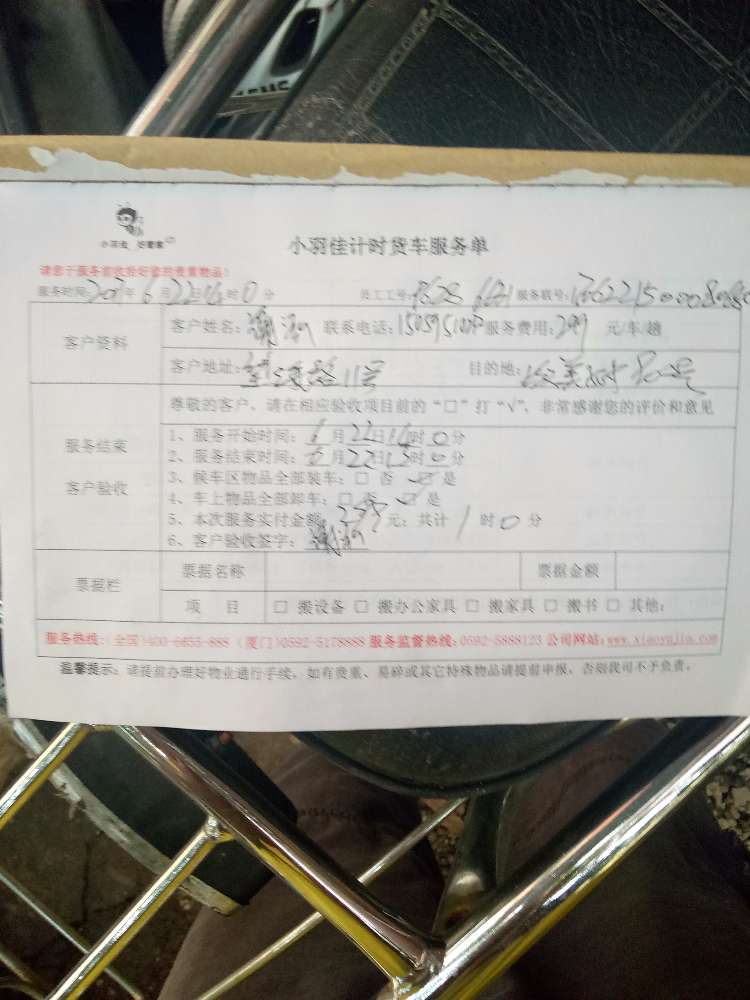 小羽佳 好管家
小羽佳计时货车服务单
请您于服务前收捡好您的贵重物品!
服务时间: 年6月22日 时0分 员工工号: 服务联号:
客户资料 客户姓名:谢 联系电话: 服务费用:299 元/车/趟
客户地址: 路11号 目的地:
尊敬的客户，请在相应验收项目前的“□”打“√”，非常感谢您的评价和意见
服务结束
客户验收
1、服务开始时间:6月22日14时0分
2、服务结束时间:6月22日15时0分
3、候车区物品全部装车:□ 否 ☑ 是
4、车上物品全部卸车:□ 否 ☑ 是
5、本次服务实付金额 299元;共计1时0分
6、客户验收签字:谢
票据栏 票据名称 票据金额
项 目 □ 搬设备 □ 搬办公家具 □ 搬家具 □ 搬书 □ 其他:
服务热线:(全国)400-6655-888 (厦门)0592-5178888 服务监督热线:0592-5888123 公司网站:www.xiaoyujia.com
温馨提示: 请提前办理好物业进行手续，如有贵重、易碎或其它特殊物品请提前申报，否则我司不予负责。